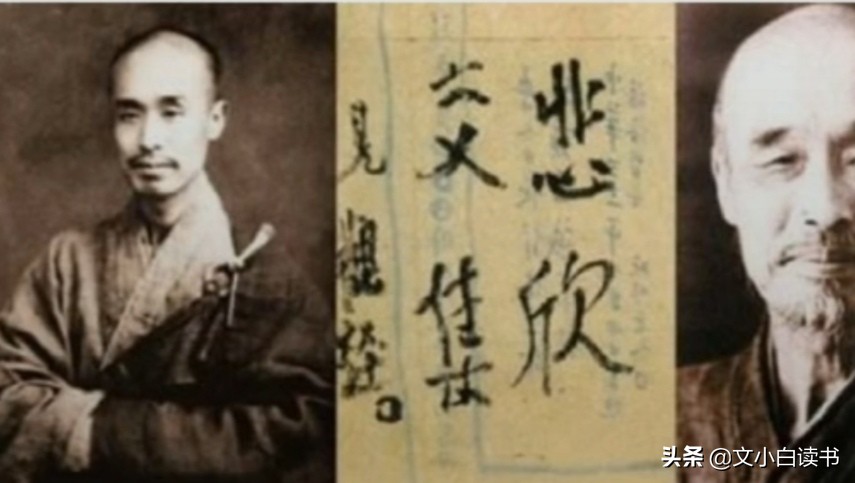 悲欣
交集
見觀經。
头条 @文小白读书